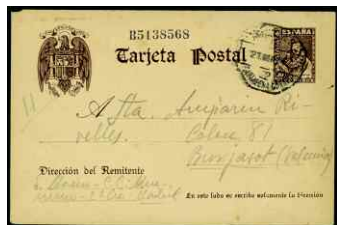 B5138568
Tarjeta Postal
ESPAÑA
A Sta. Amparin Ri-
velles.
Colon, 81
Burjasot (Valencia)
Dirección del Remitente
En este lado se escribe solamente la Dirección